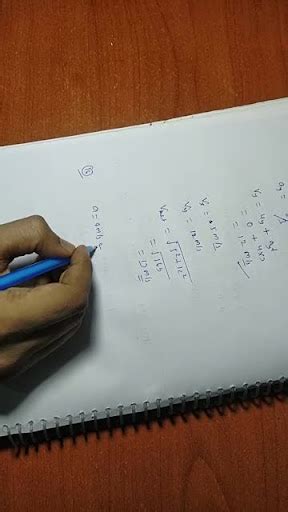 ay =
Vy = uy + ayt
= 0 + 4x3
= 12 m/s
Vx = 5 m/s
Vy = 12 m/s
Vnet = √5²+12²
= √169
= 13 m/s
a = a+b